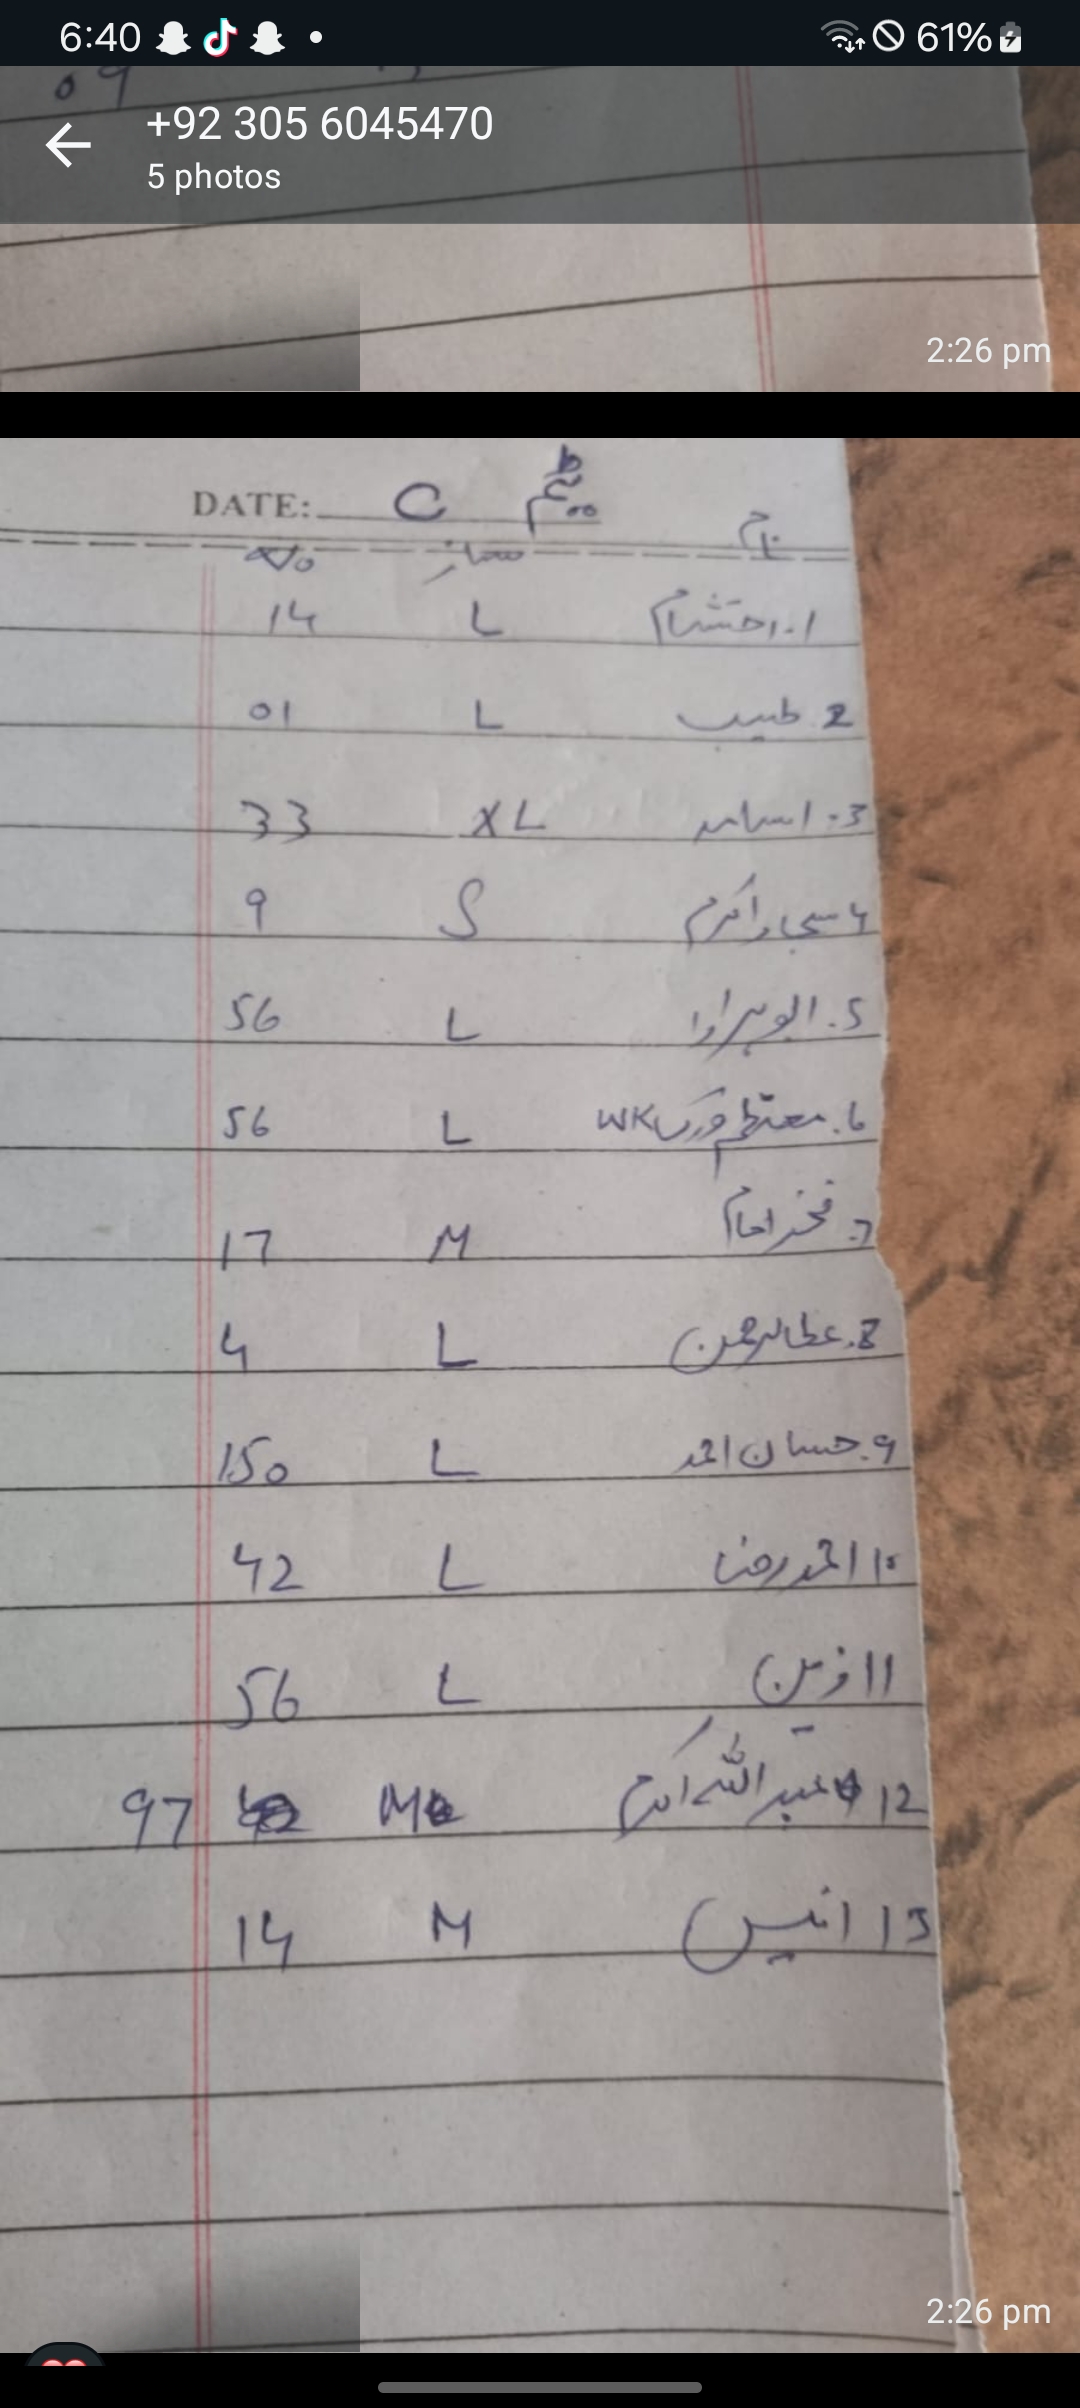 6:40 61%
+92 305 6045470
5 photos
09
2:26 pm
DATE: C ٹیم
نام سائز No
1. احتشام L 14
2. طیب L 01
3. اسامہ XL 33
4 سجاد اکرم S 9
5. L 56
6. معتظم ورک WK L 56
7. فخر امام M 17
8. عطالرحمن L 4
9. حسان احمد L 150
10 احمد رضا L 42
11 زین L 56
12 عبداللہ اکرم M 97
13 انیس M 14
2:26 pm